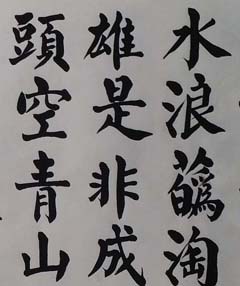 水浪蘤淘
雄是非成
頭空青山